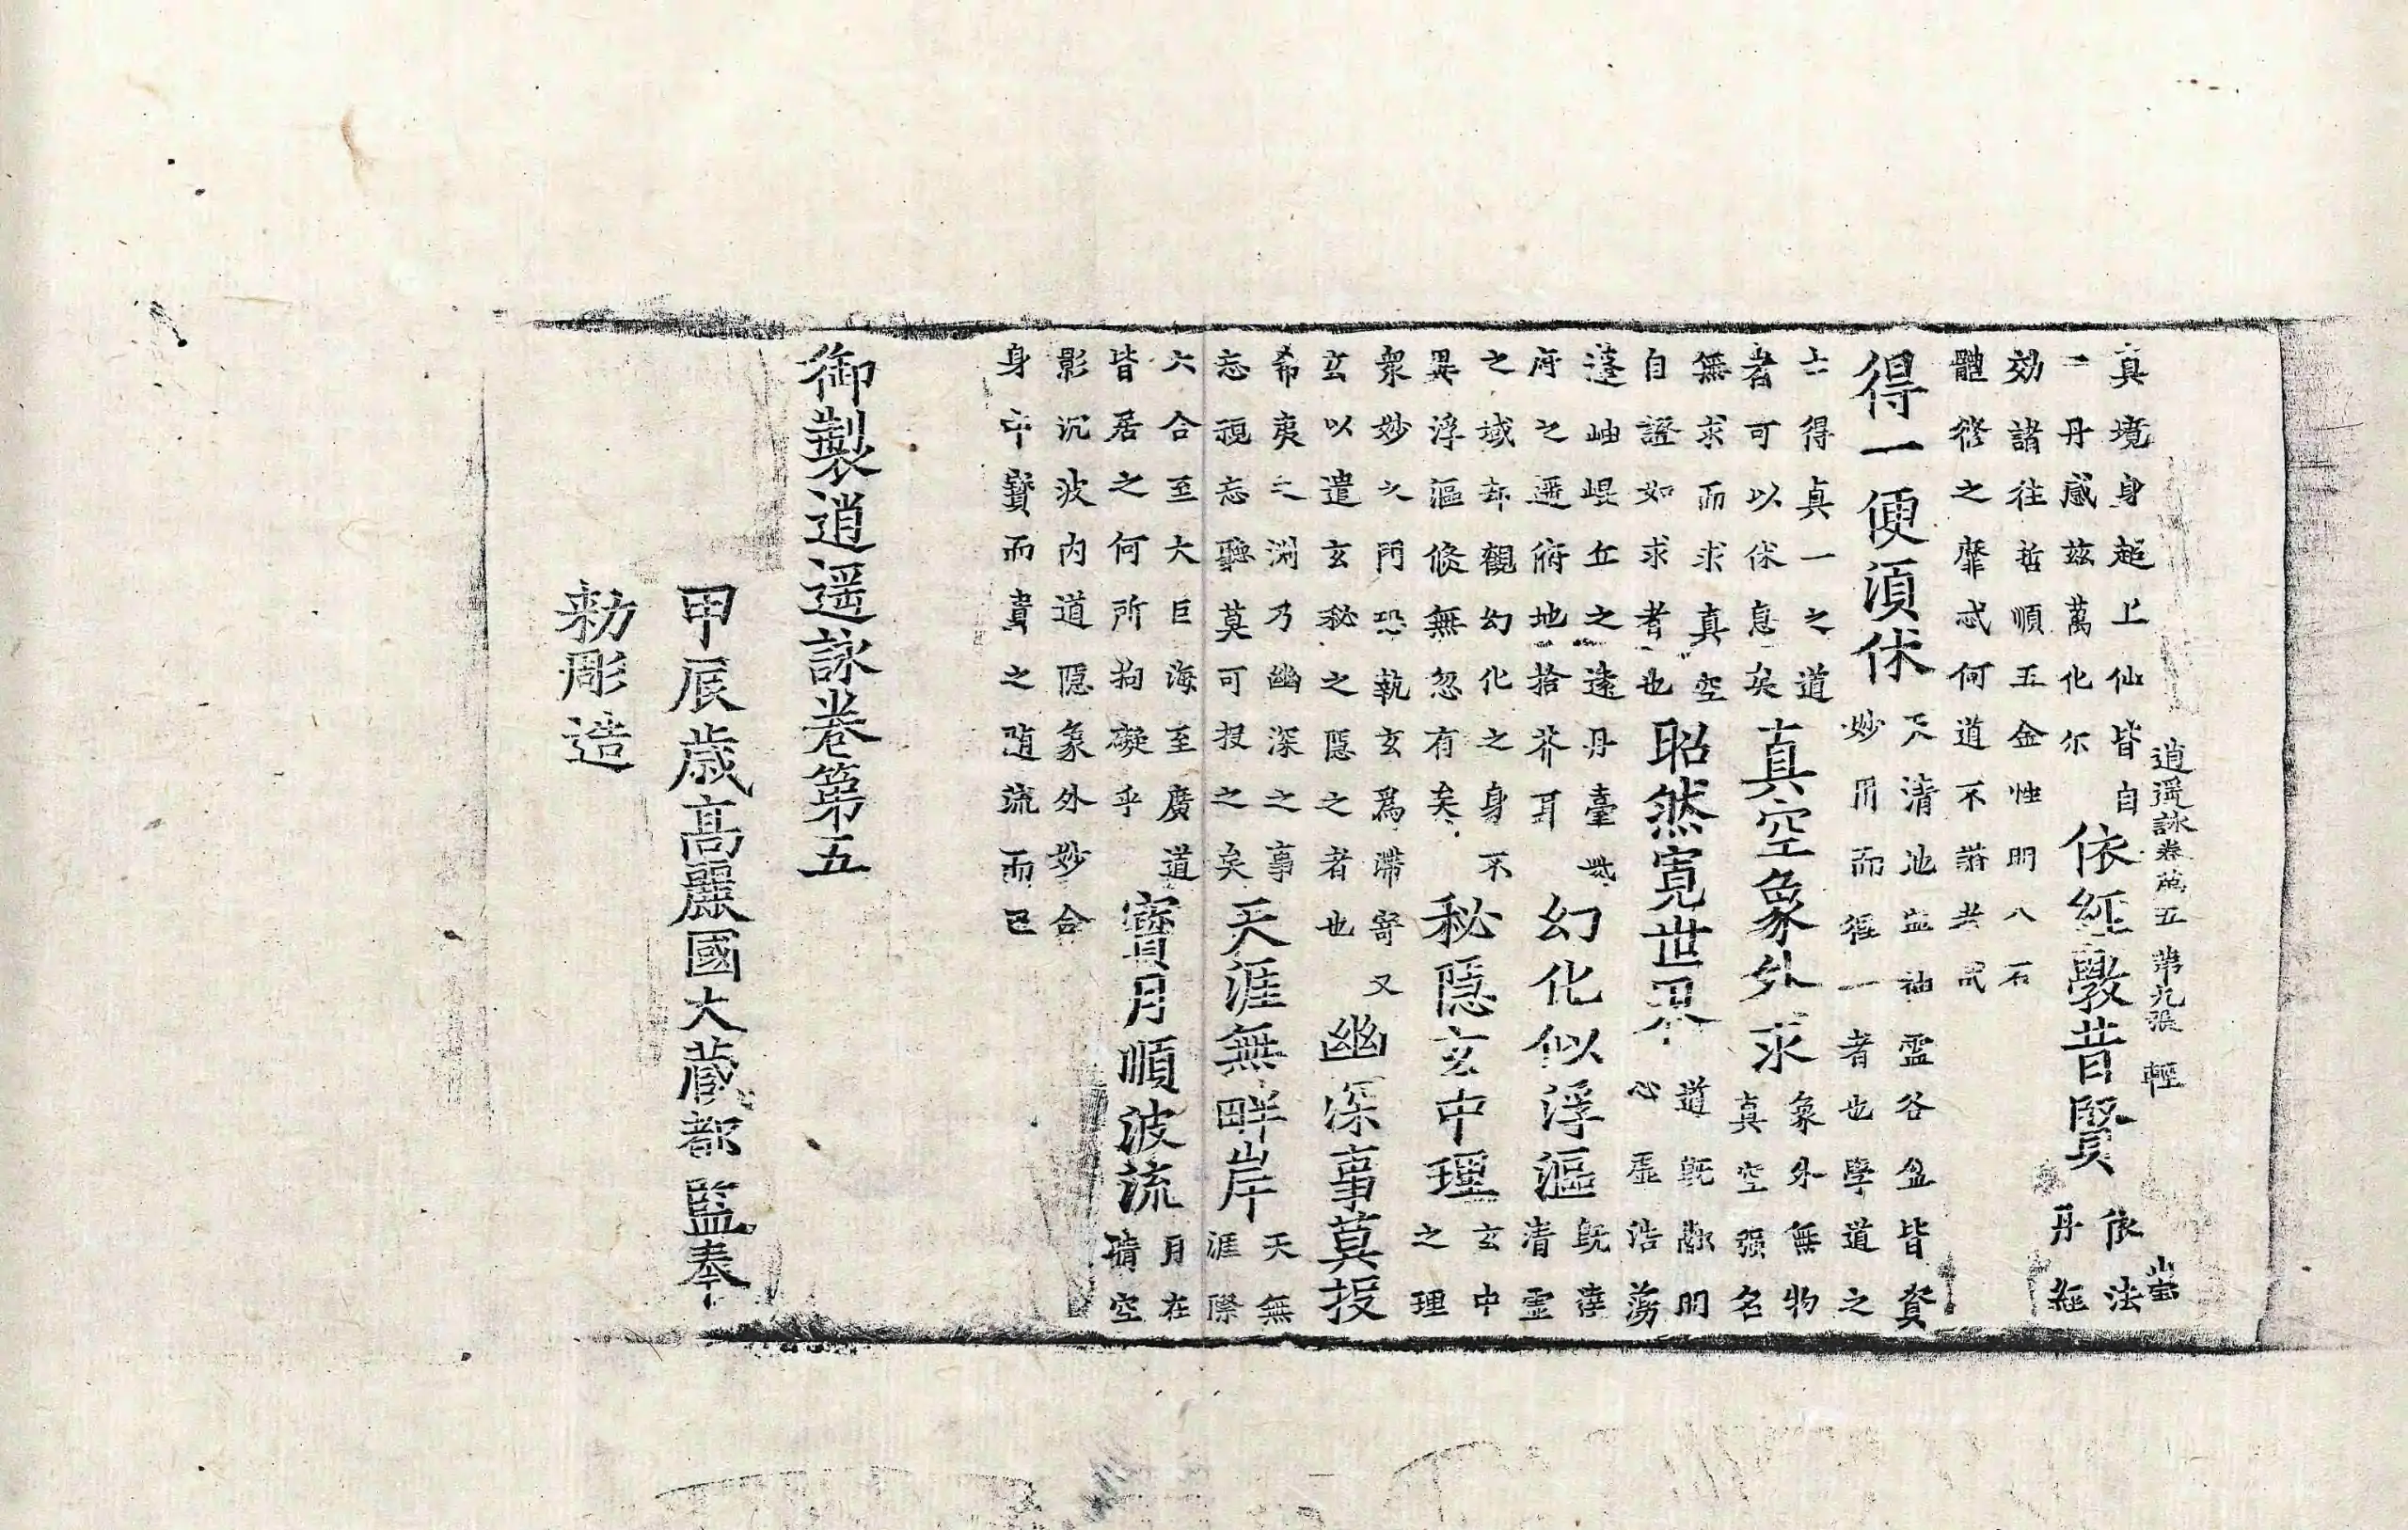 逍遥詠卷第五 第九張 輕
真境身超上仙皆自
一丹感兹萬化尓
依經斅昔賢
依法
丹經
効諸往哲順五金性明八石
體修之靡忒何道不諧
得一便須休
天清地寧神霊谷盈皆資
妙用而得一者也學道之
士得真一之道
者可以休息矣
真空象外求
象外無物
真空强名
無求而求真空
自證如求者也
昭然寛世界
道既明
心虚浩蕩
蓬岫崐丘之遠丹臺紫
府之遥俯地拾芥耳
幻化似浮漚
既達
清霊
之域却觀幻化之身不
異浮漚倏無忽有矣
秘隠玄中理
玄中
之理
衆妙之門恐執玄爲滯寄又
玄以遣玄秘之隠之者也
幽深事莫投
希夷之淵乃幽深之事
忘視忘聽莫可投之矣
天涯無畔岸
天無
涯際
六合至大巨海至廣道
皆居之何所拘礙乎
寳月順波流
月在
晴空
影沉波内道隠象外妙合
身中寳而貴之随流而已
御製逍遥詠卷第五
甲辰歳高麗國大藏都監奉
勑彫造